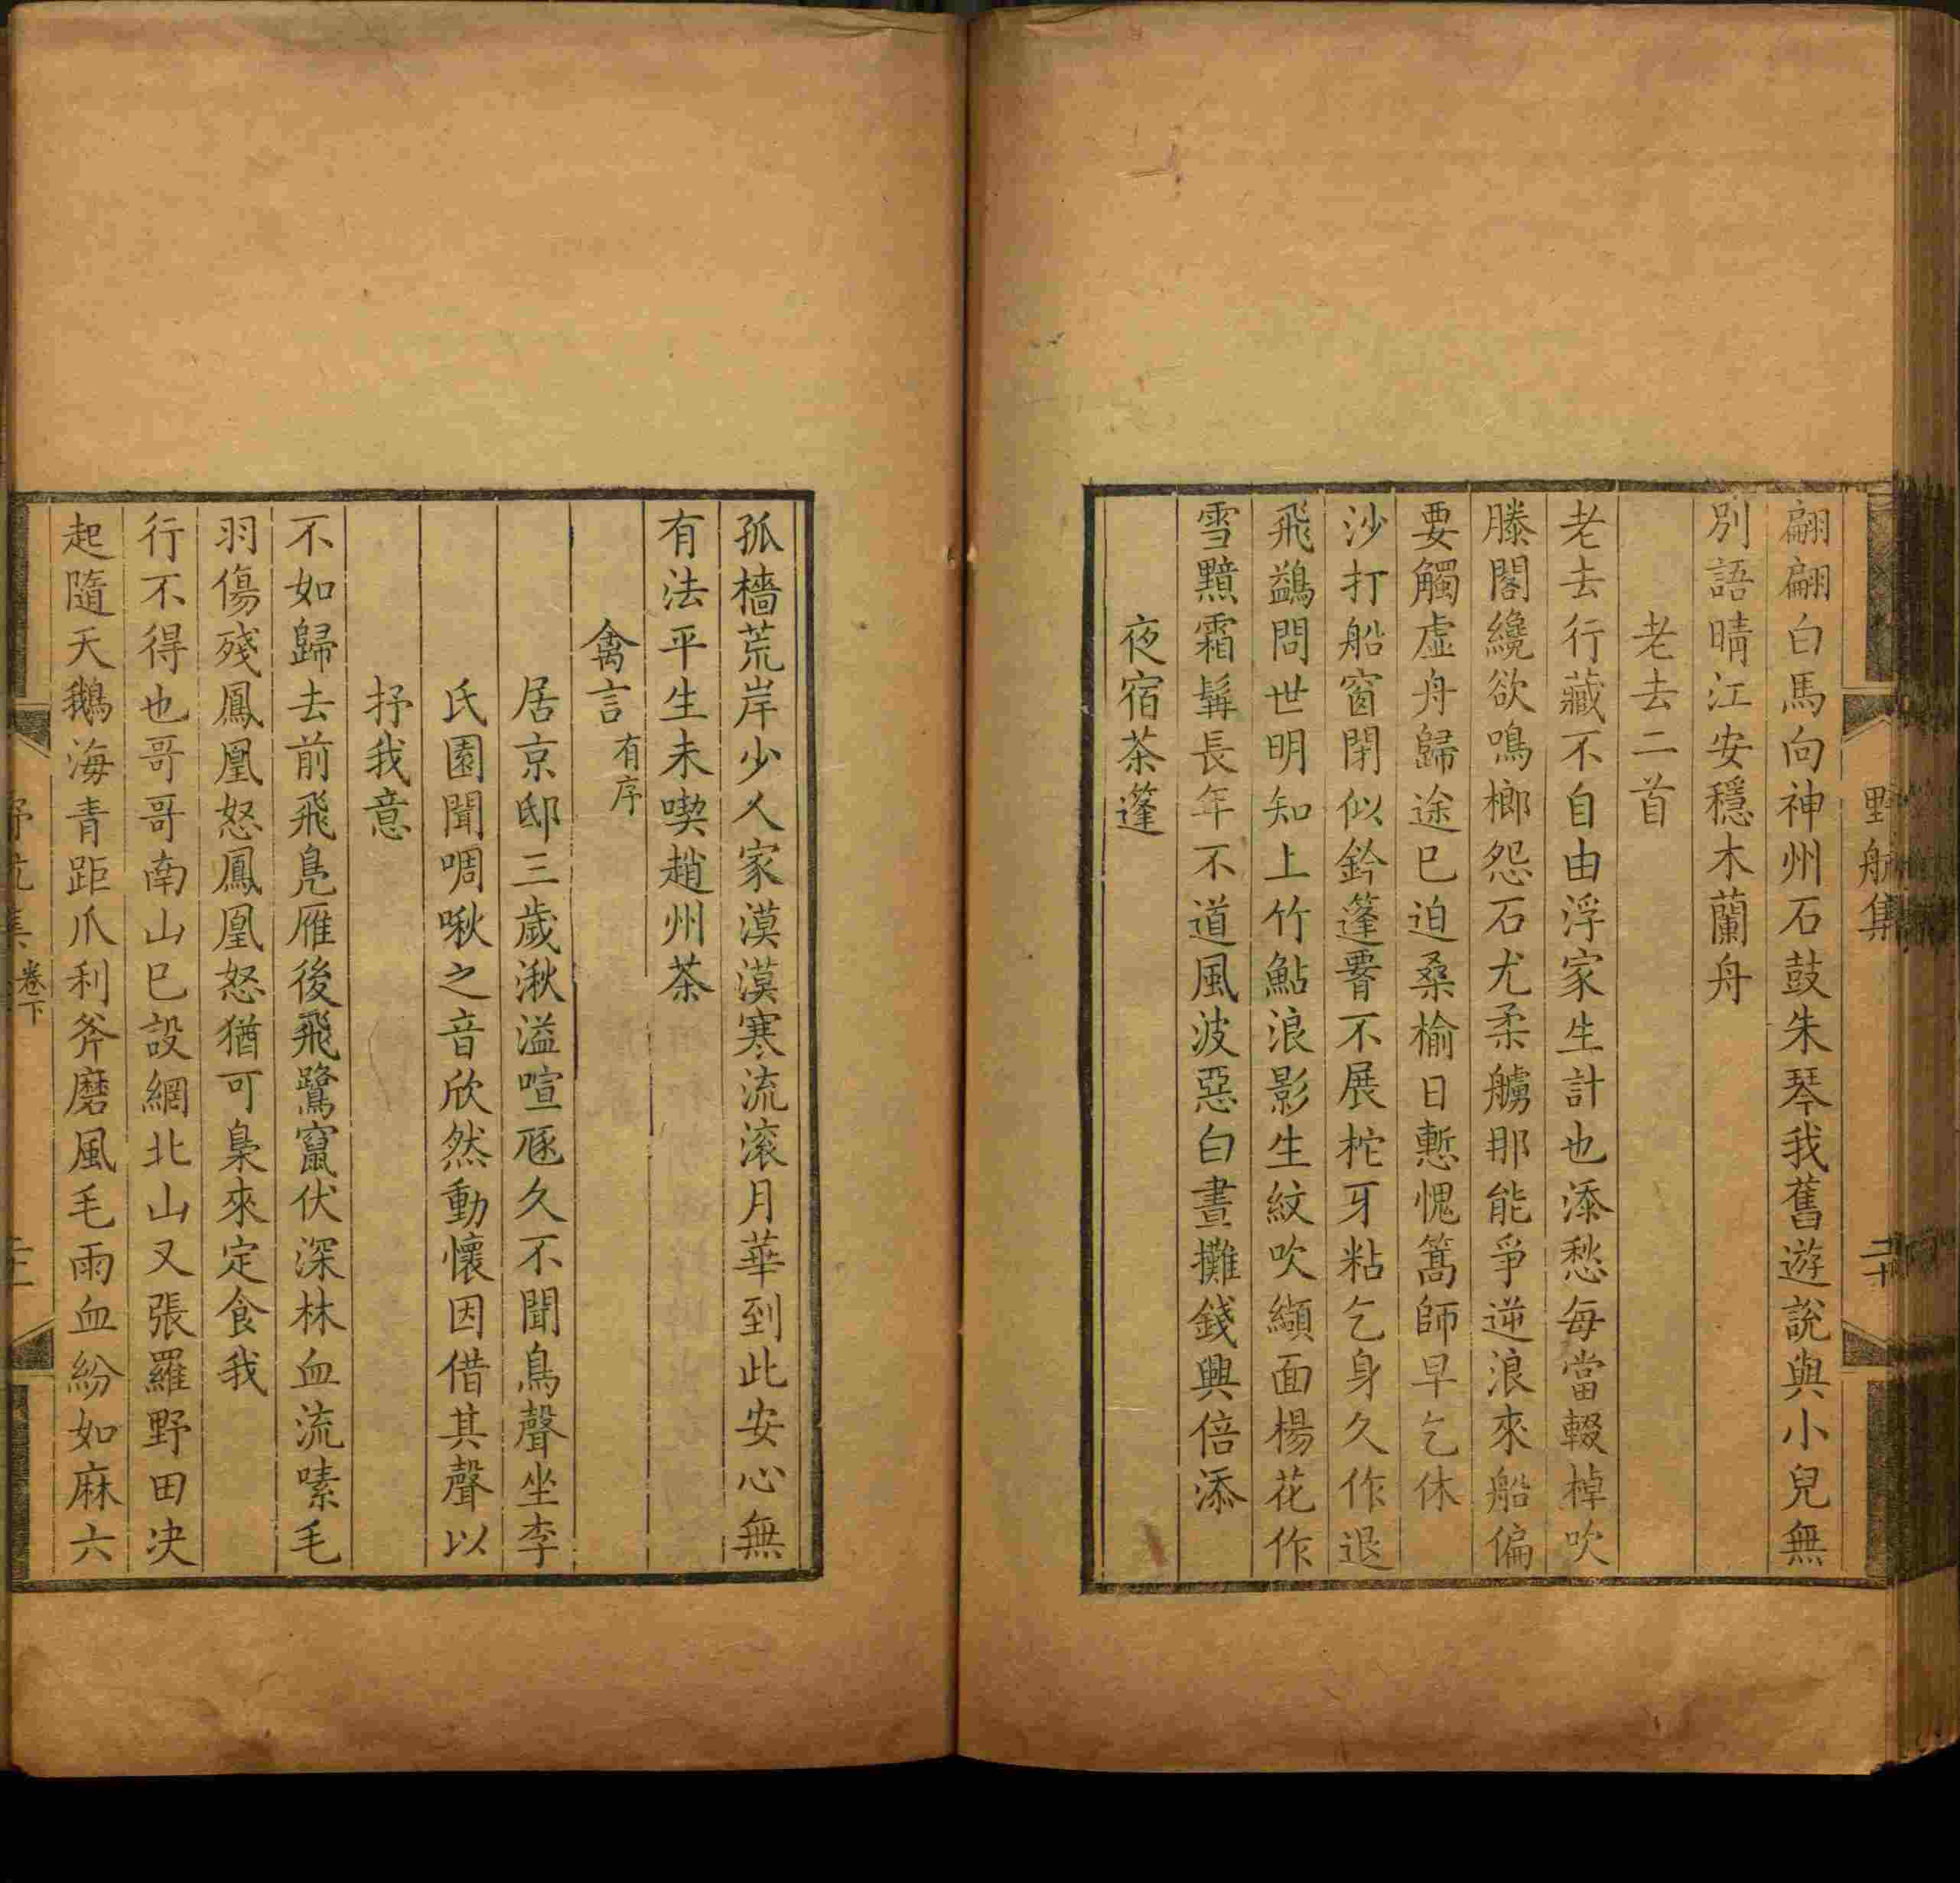 野航集
二十
翩翩白馬向神州石鼓朱琴我舊遊說與小兒無
別語晴江安穩木蘭舟
老去二首
老去行藏不自由浮家生計也添愁每當輟棹吹
滕閣纔欲鳴榔怨石尤柔艣那能爭逆浪來船偏
要觸虛舟歸途已迫桑榆日慙愧篙師早乞休
沙打船窗閉似鈐篷罯不展柁牙粘乞身久作退
飛鷁問世明知上竹鮎浪影生紋吹纈面楊花作
雪黰霜髯長年不道風波惡白晝攤錢興倍添
夜宿茶蓬
孤檣荒岸少人家漠漠寒流滚月華到此安心無
有法平生未喫趙州茶
禽言有序
居京邸三歲湫溢喧豗久不聞鳥聲坐李
氏園聞啁啾之音欣然動懷因借其聲以
抒我意
不如歸去前飛鳧雁後飛鷺竄伏深林血流嗉毛
羽傷殘鳳凰怒鳳凰怒猶可梟來定食我
行不得也哥哥南山已設網北山又張羅野田决
起隨天鵝海青距爪利斧磨風毛雨血紛如麻六
卷下